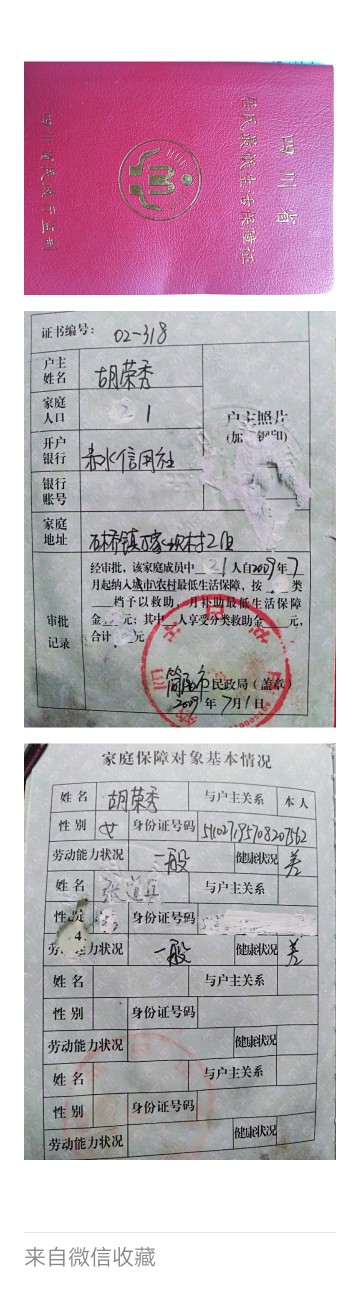 四川省
居民最低生活保障证
四川省民政厅监制
证书编号： 02-318
户主姓名 胡荣秀
家庭人口 1
户主照片
开户银行 赤水信用社
银行账号
家庭地址
经审批，该家庭成员中 1 人自2009年7
月起纳入城市/农村最低生活保障，按 类
档予以救助，月补助最低生活保障
金 元；其中 人享受分类救助金 元，
合计 元。
审批记录
简阳市民政局（盖章）
2009年7月1日
家庭保障对象基本情况
姓名 胡荣秀 与户主关系 本人
性别 女 身份证号码
劳动能力状况 一般 健康状况 差
姓名 张道兵 与户主关系
身份证号码
一般 健康状况 差
姓名 与户主关系
性别 身份证号码
劳动能力状况 健康状况
姓名 与户主关系
性别 身份证号码
劳动能力状况 健康状况
来自微信收藏